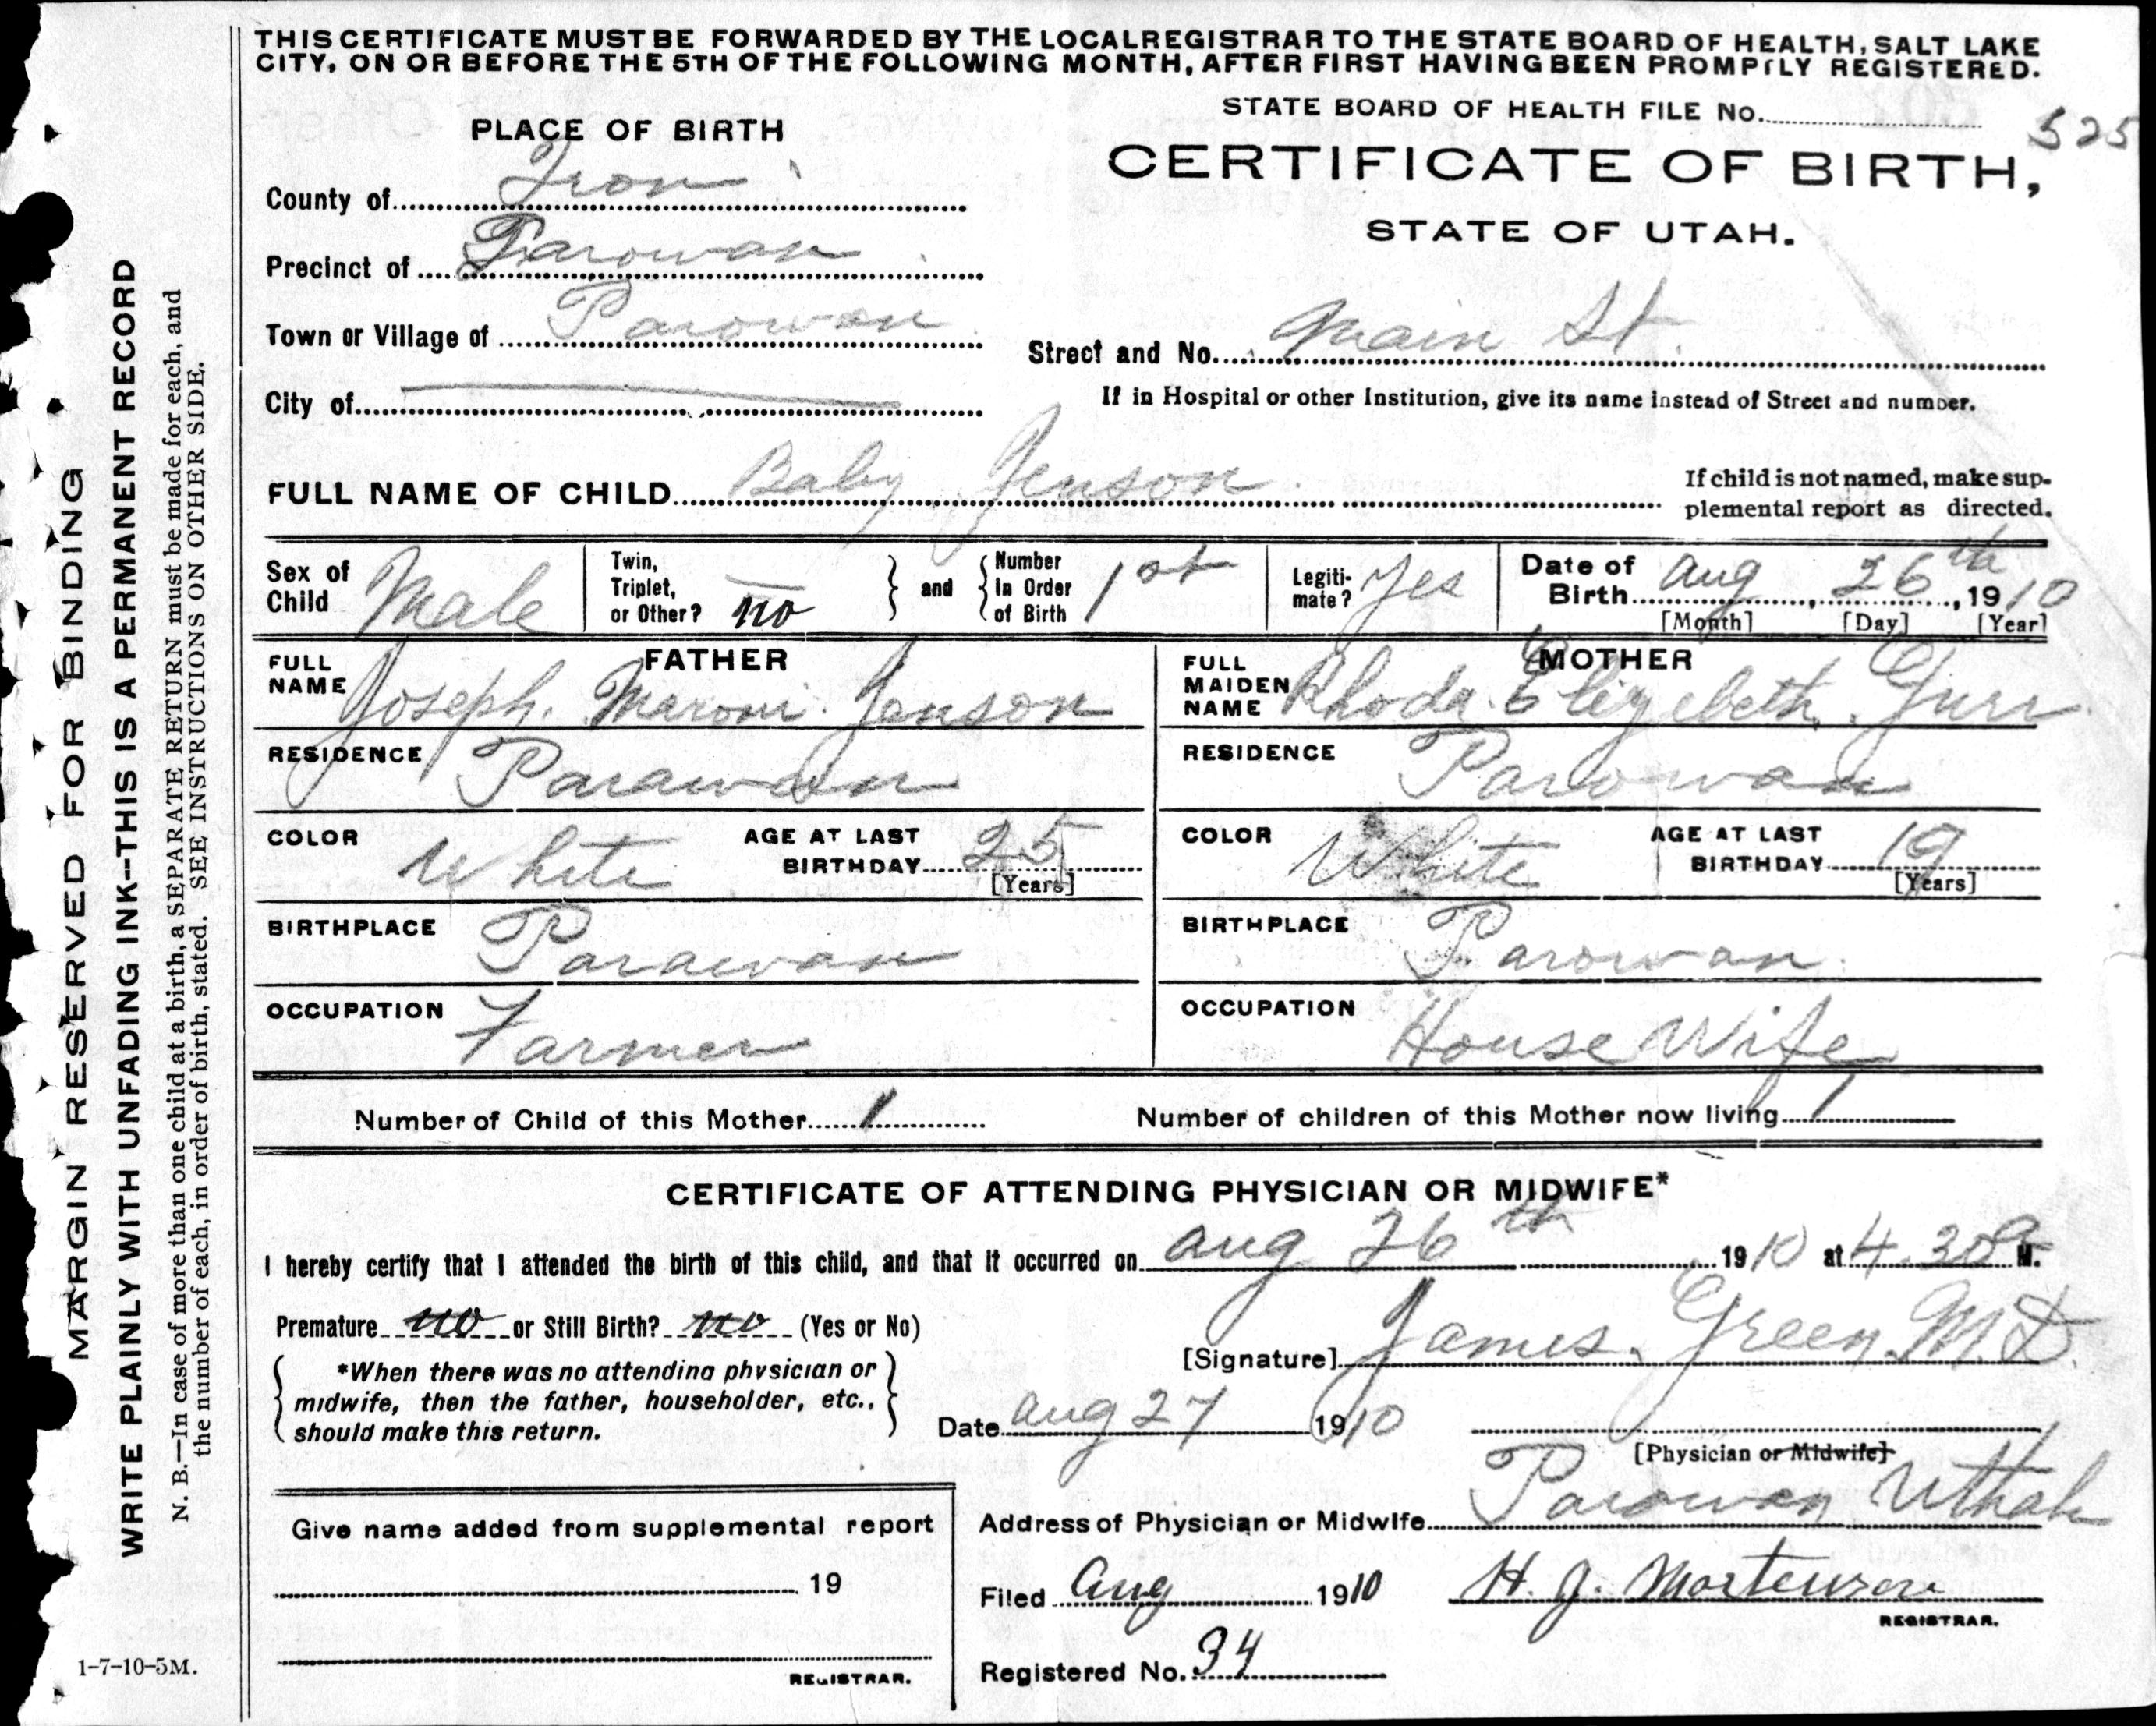 THIS CERTIFICATE MUST BE FORWARDED BY THE LOCAL REGISTRAR TO THE STATE BOARD OF HEALTH, SALT LAKE
CITY, ON OR BEFORE THE 5TH OF THE FOLLOWING MONTH, AFTER FIRST HAVING BEEN PROMPTLY REGISTERED.
STATE BOARD OF HEALTH FILE No. 525
PLACE OF BIRTH
CERTIFICATE OF BIRTH,
STATE OF UTAH.
County of Iron
Precinct of Parowan
Town or Village of Parowan
Street and No. Main St.
City of
If in Hospital or other Institution, give its name instead of Street and number.
FULL NAME OF CHILD Baby Jenson
If child is not named, make sup-
plemental report as directed.
Sex of Child Male
Twin, Triplet, or Other? no
and
Number In Order of Birth 1st
Legiti-mate? Yes
Date of Birth Aug 26th, 1910
[Month] [Day] [Year]
FATHER
FULL NAME Joseph Maroni Jenson
RESIDENCE Parawan
COLOR White AGE AT LAST BIRTHDAY 25
[Years]
BIRTHPLACE Parawan
OCCUPATION Farmer
MOTHER
FULL MAIDEN NAME Rhoda Elizebeth Gurr
RESIDENCE Parowan
COLOR White AGE AT LAST BIRTHDAY 19
[Years]
BIRTHPLACE Parowan
OCCUPATION House Wife
Number of Child of this Mother 1
Number of children of this Mother now living 1
CERTIFICATE OF ATTENDING PHYSICIAN OR MIDWIFE*
I hereby certify that I attended the birth of this child, and that it occurred on Aug 26th 1910 at 4.30 a M.
Premature no or Still Birth? no (Yes or No)
*When there was no attending physician or
midwife, then the father, householder, etc.,
should make this return.
[Signature] James Green M.D.
Date Aug 27 1910
[Physician or Midwife]
Address of Physician or Midwife Parowan Uthah
Give name added from supplemental report
19
REGISTRAR.
Filed Aug 1910 H. J. Mortenson
REGISTRAR.
Registered No. 34
1-7-10-5M.
MARGIN RESERVED FOR BINDING
WRITE PLAINLY WITH UNFADING INK--THIS IS A PERMANENT RECORD
N. B.—In case of more than one child at a birth, a SEPARATE RETURN must be made for each, and
the number of each, in order of birth, stated. SEE INSTRUCTIONS ON OTHER SIDE.